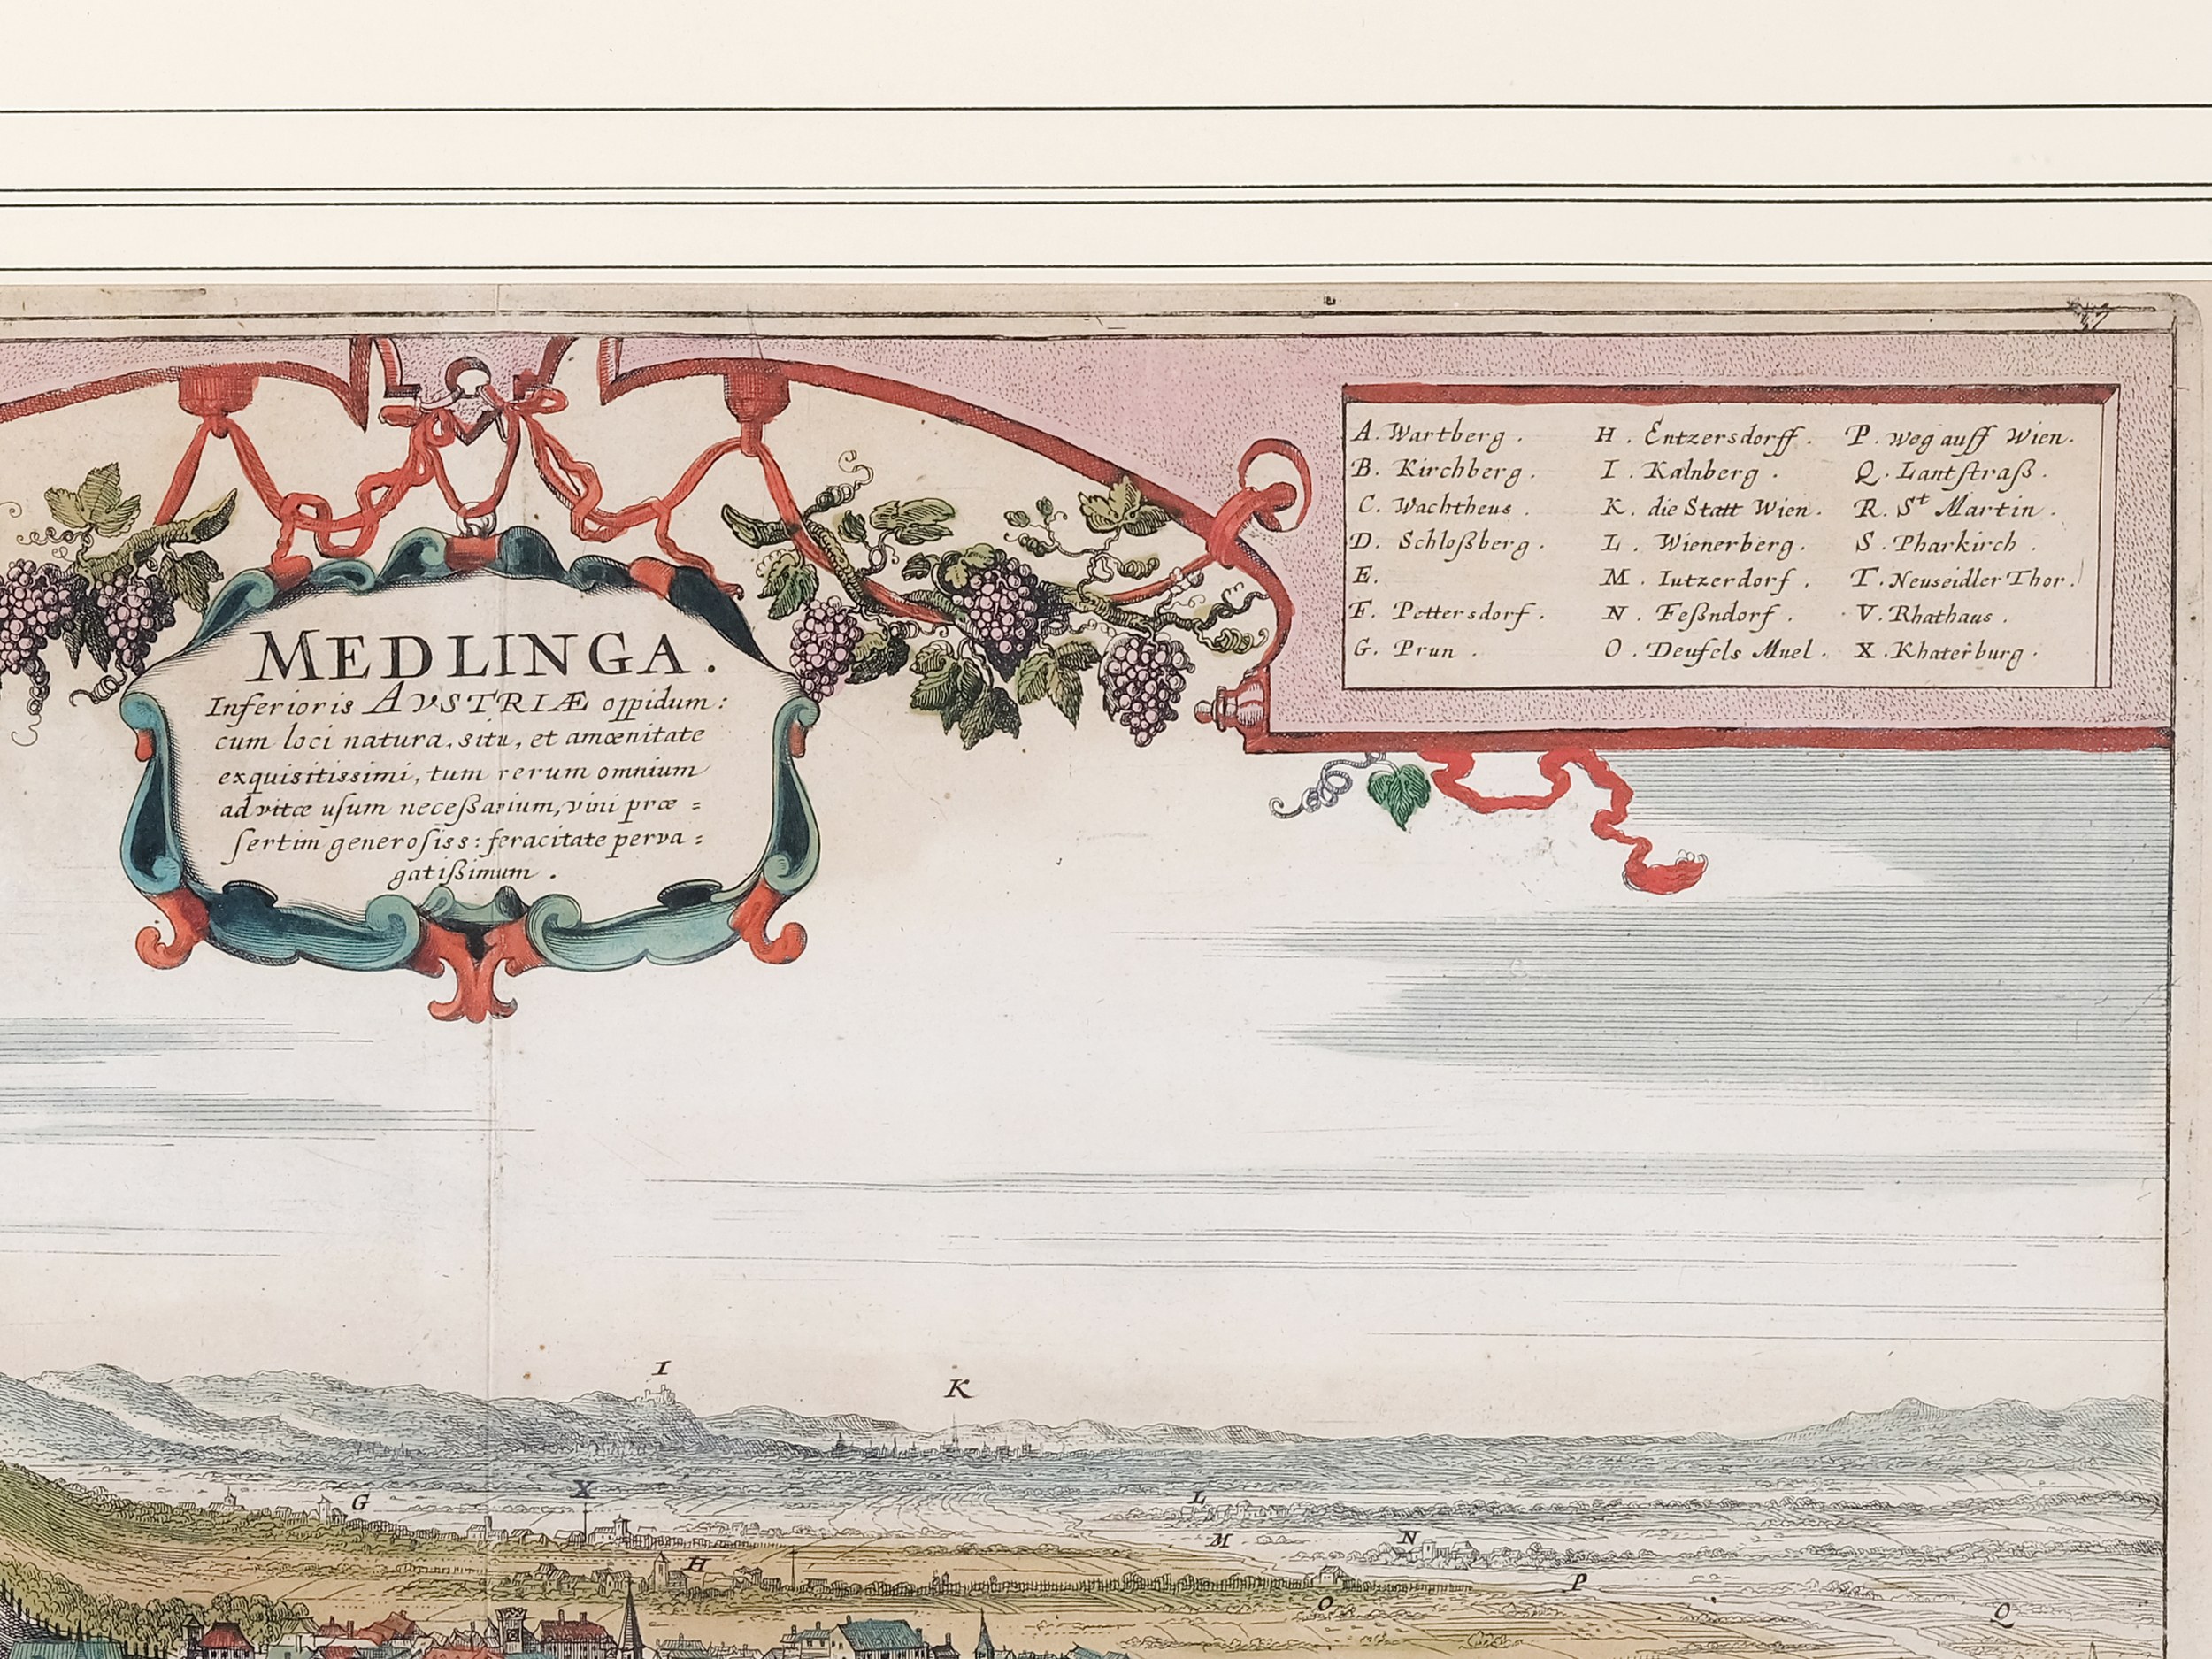 MEDLINGA.
Inferioris AVSTRIÆ oppidum:
cum loci natura, situ, et amœnitate
exquisitissimi, tum rerum omnium
ad vitæ uſum neceßarium, vini præ=
ſertim generoſiss: feracitate perva=
gatißimum.
A. Wartberg.
B. Kirchberg.
C. Wachtheus.
D. Schloßberg.
E.
F. Pettersdorf.
G. Prun.
H. Entzersdorff.
I. Kalnberg.
K. die Statt Wien.
L. Wienerberg.
M. Iutzerdorf.
N. Feßndorf.
O. Deufels Muel.
P. weg auff Wien.
Q. Lantſtraß.
R. St Martin.
S. Pharkirch.
T. Neuseidler Thor.
V. Rhathaus.
X. Khaterburg.
I
K
G
X
L
M
N
H
P
O
Q